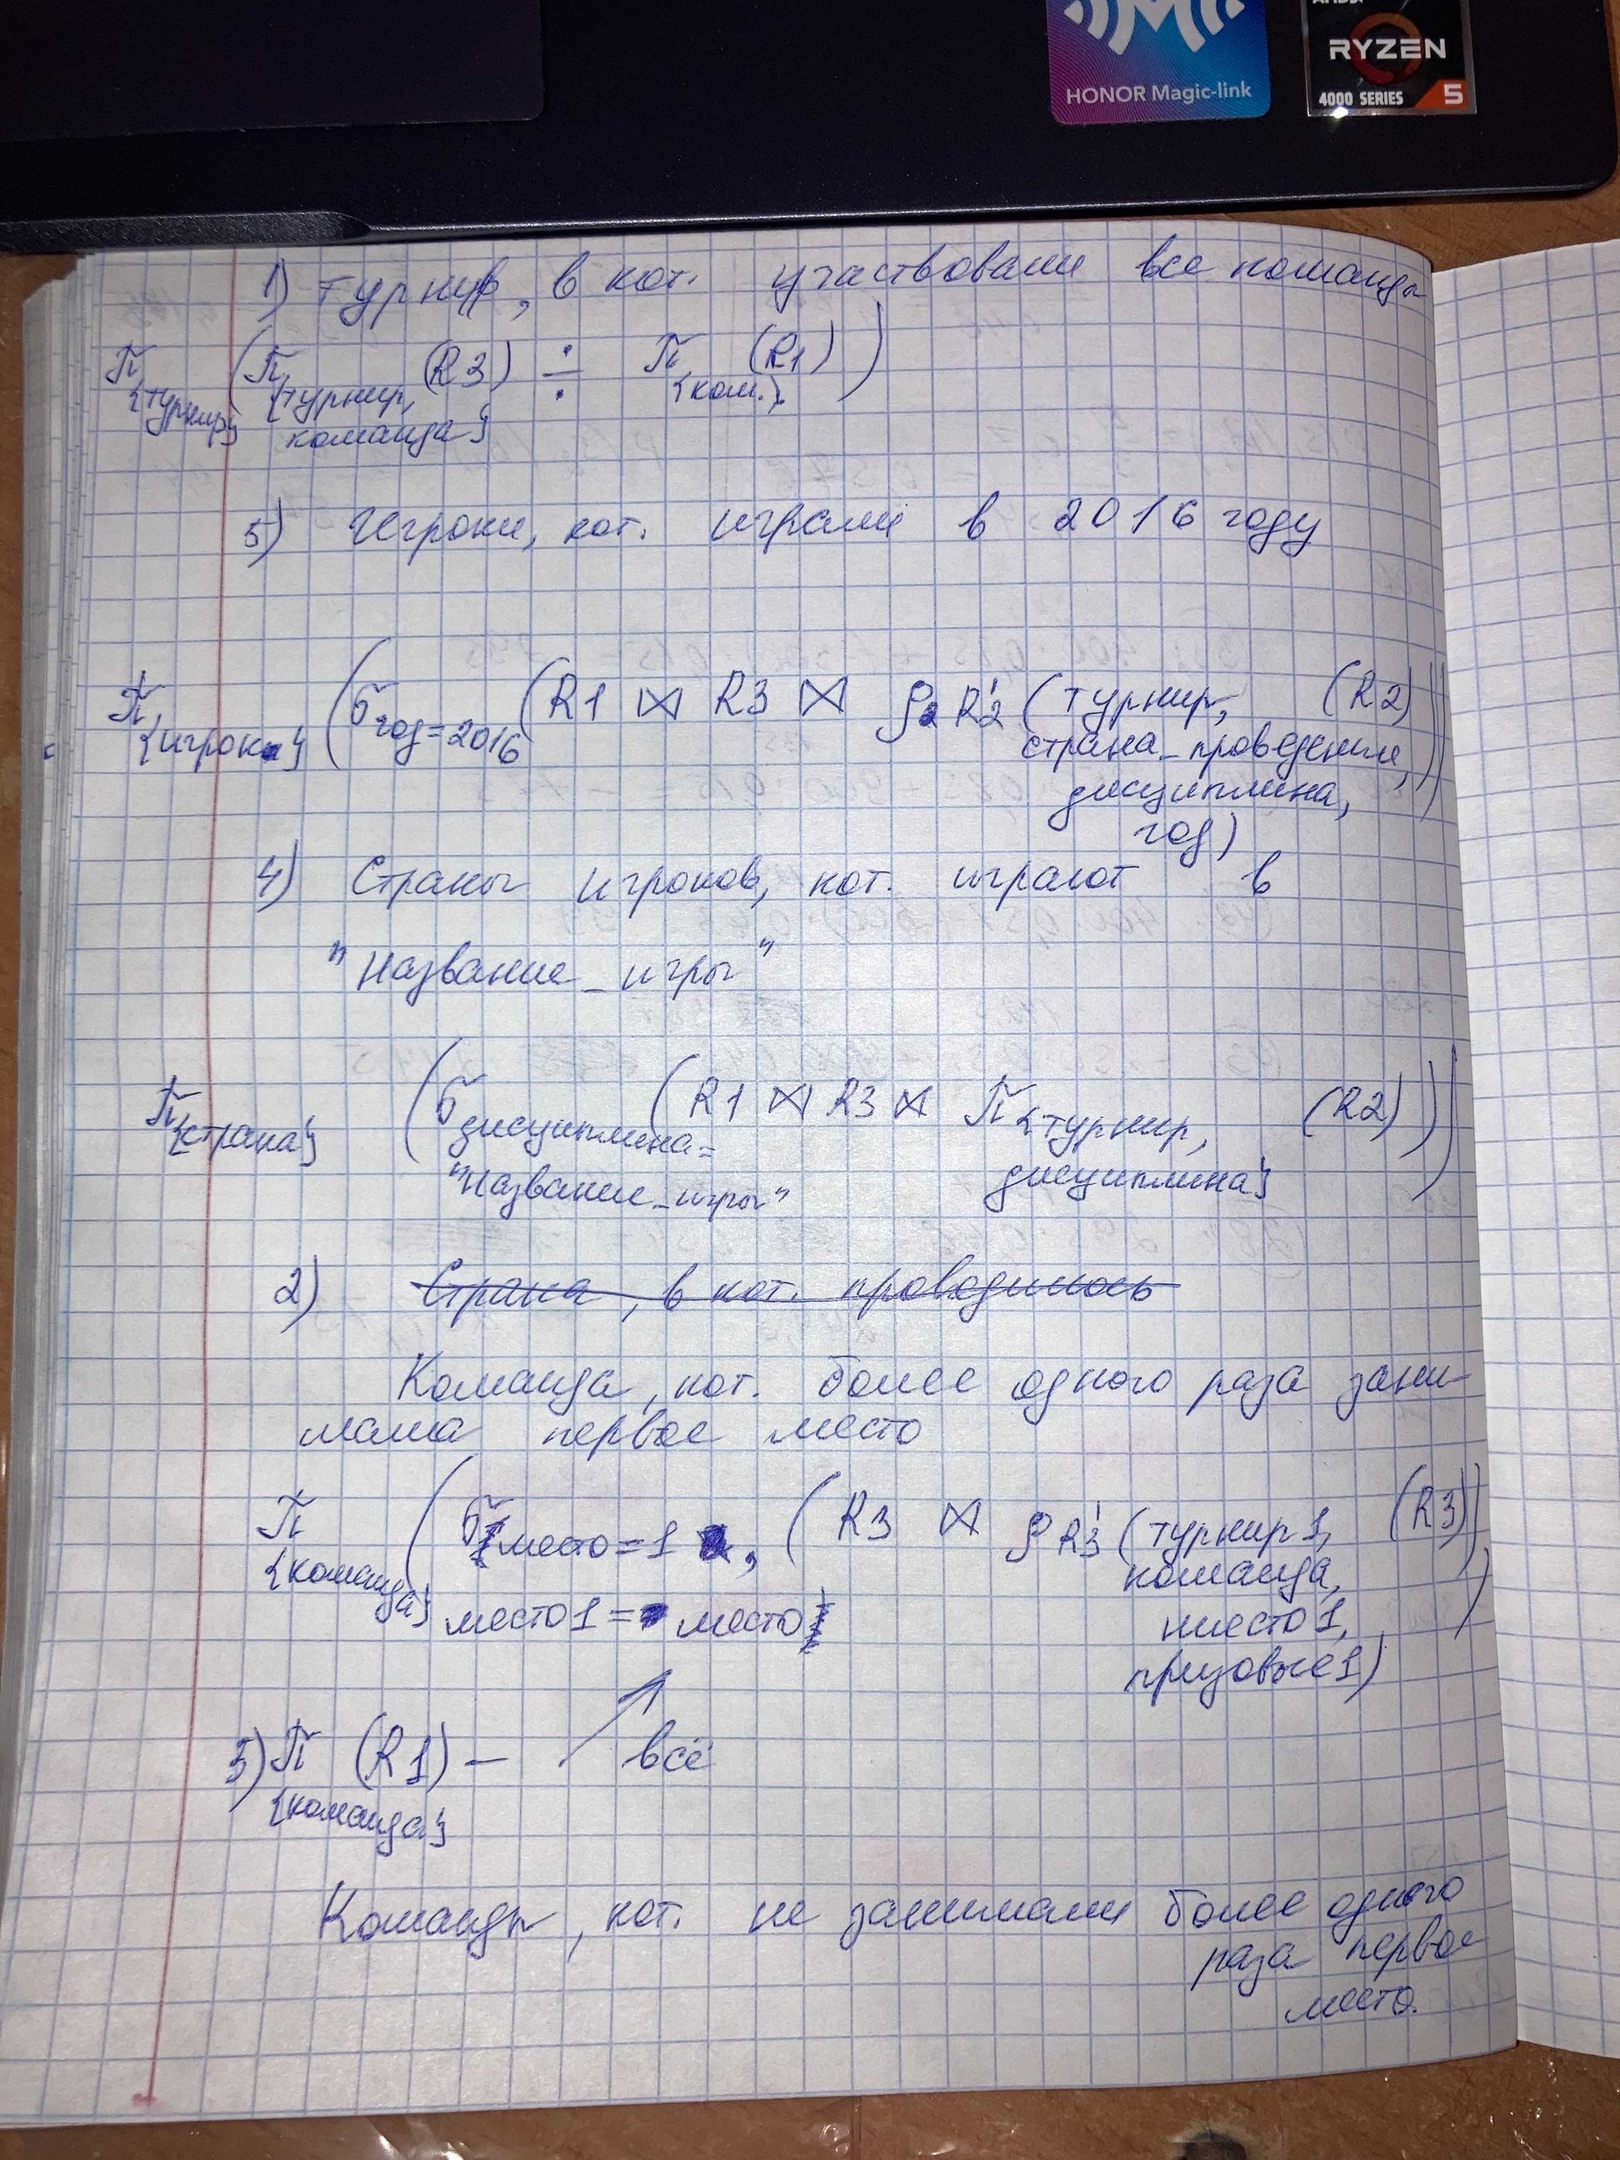 AMD
RYZEN
4000 SERIES 5
HONOR Magic-link
1) турнир, в кот. участвовали все команды
π{турнир} (π{турнир, команда} (R3) ÷ π{ком.} (R1))
5) Игроки, кот. играли в 2016 году
π{игрок} (σ год=2016 (R1 ⋈ R3 ⋈ ρ R2' (турнир, страна_проведения, дисциплина, год) (R2)))
4) Страны игроков, кот. играют в
"Название_игры"
π{страна} (σ дисциплина= "Название_игры" (R1 ⋈ R3 ⋈ π{турнир, дисциплина} (R2)))
2) Страна, в кот. проводилось
Команда, кот. более одного раза зани-
мала первое место
π{команда} (σ место=1, место1= место (R3 ⋈ ρ R3' (турнир1, команда, место1, призовые1) (R3)))
3) π{команда} (R1) — всё
Команды, кот. не занимали более одного
раза первое
место.